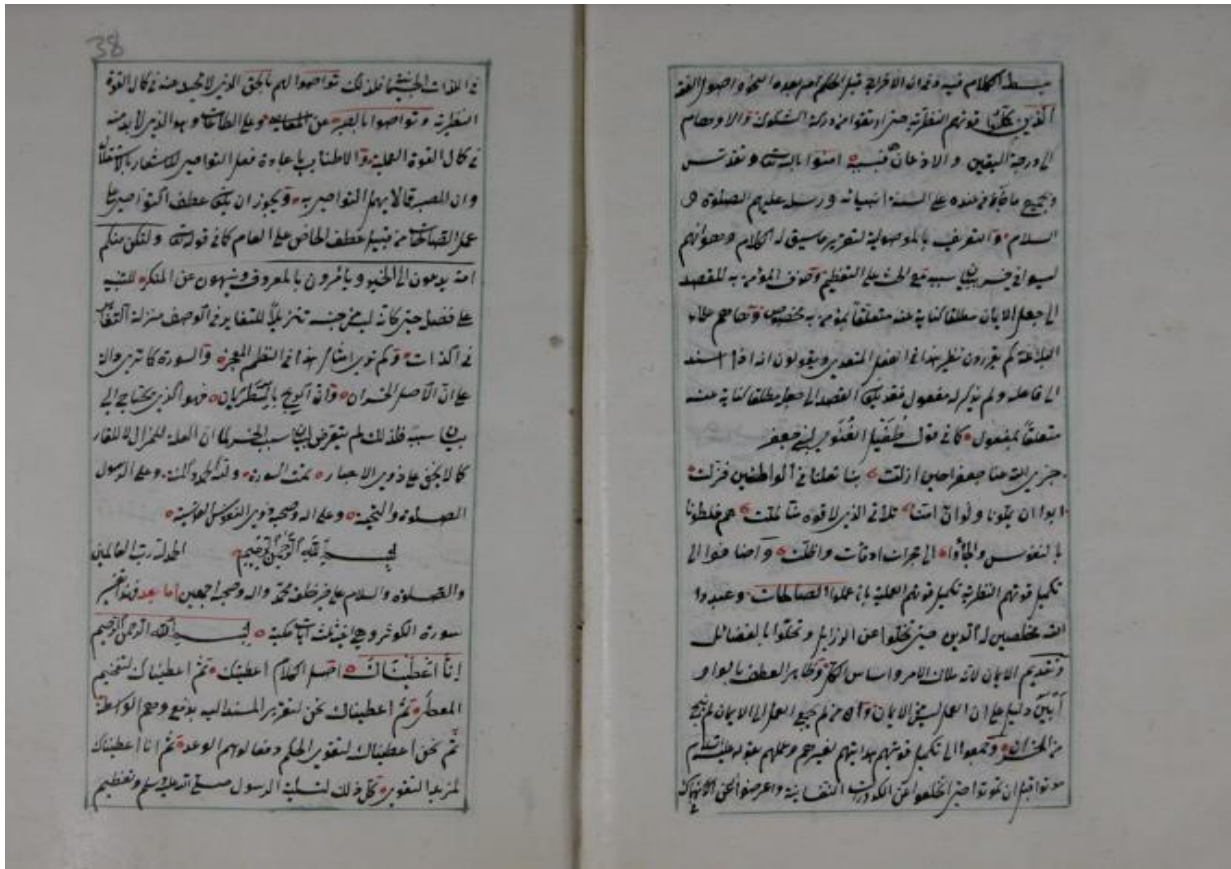 بسط الكلام فيه وفي ان الاخراج قبل الحكم ام بعده النحاة واصول الفقه
الذين قوتهم النظرية حتى ارتقوا من دركة الشكوك والاوهام
الى درجة اليقين والاذعان امنوا بالله وتقدس
وبجميع ما جاء من عنده على السنة انبيائه ورسله عليهم الصلوة و
السلام والتعريف بالموصولية لتقرير ما سيق له الكلام وهو انهم
ليسوا في خسر ببيان سببه مع الحث على التعظيم وحذف المؤمن به للقصد
الى جعل الايمان مطلقا كناية عنه متعلقا بمؤمن به مخصوص
البلاغة كم يقررون نظير هذا في الفعل المتعدي ويقولون انه اذا اسند
الى فاعله ولم يذكر له مفعول فقد يكون القصد الى جعله مطلقا كناية عنه
متعلقا بمفعول كما في قول طفيل الغنوي لبني جعفر
جزى الله عنا جعفرا حين ازلقت بنا نعلنا في الواطئين فزلت
ابوا ان يملونا ولو ان امنا تلاقي الذي لاقوه منا لملت هم خلطونا
بالنفوس والجأوا الى حجرات ادفأت واظلت واضافوا الى
تكميل قوتهم النظرية تكميل قوتهم العملية بان عملوا الصالحات وعبدوا
الله مخلصين له الدين حتى تخلوا عن الرزايل وتحلوا بالفضائل
وتقديم الايمان لانه ملاك الامر واساس الكل وظاهر العطف بالواو
دليل على ان العمل ليس من الايمان وان من لم يجمع العمل الى الايمان لم ينج
من الخسران وجمعوا الى تكميل قوتيهم هدايتهم لغيرهم وعملهم بقوله عليه السلام
موتوا قبل ان تموتوا حتى انخلعوا عن الكدورات النفسانية واعرضوا عن الانهماك
38
في اللذات الجسمانية فلذلك تواصوا لهم بالحق الذي لا محيد عنه في كمال القوة
النظرية وتواصوا بالصبر عن وعلى الطاعات وهو الذي لا بد منه
في كمال القوة العملية والاطناب باعادة فعل التواصي للاشعار بالاستقلال
وان الصبر قالا يهم التواصي به ويجوز ان يكون عطف التواصي على
عمل الصالحات من قبيل عطف الخاص على العام كما في قوله ولتكن منكم
امة يدعون الى الخير ويأمرون بالمعروف وينهون عن المنكر للتنبيه
على فضل حتى كانه ليس من جنسه تنزيلا للتغاير في الوصف منزلة التغاير
في الذات وكم نرى امثال هذا في النظم المعجز والسورة كما ترى دالة
على ان الاصل الخسران وان الربح فهو الذي يحتاج الى
بيان سببه فلذلك لم يتعرض لبيان سبب الخسر
كما لا يخفى على ذوي الاعتبار تمت السورة ولله الحمد والمنة وعلى الرسول
الصلوة والتحية وعلى اله وصحبه ذوي النفوس
بسم الله الرحمن الرحيم الحمد لله رب العالمين
والصلوة والسلام على خير خلقه محمد واله وصحبه اجمعين اما بعد فهذا تفسير
سورة الكوثر وهي ثلث آيات مكية بسم الله الرحمن الرحيم
إنا أعطيناك اصل الكلام اعطيتك ثم اعطيناك لتفخيم
المعطي ثم اعطيناك نحن لتقرير المسند اليه بدفع وهم الواسطة
ثم نحن اعطيناك لتقوي الحكم الوعد ثم انا اعطيناك
لمزيد التقوي كل ذلك لتسلية الرسول صلى الله عليه وسلم وتعظيم